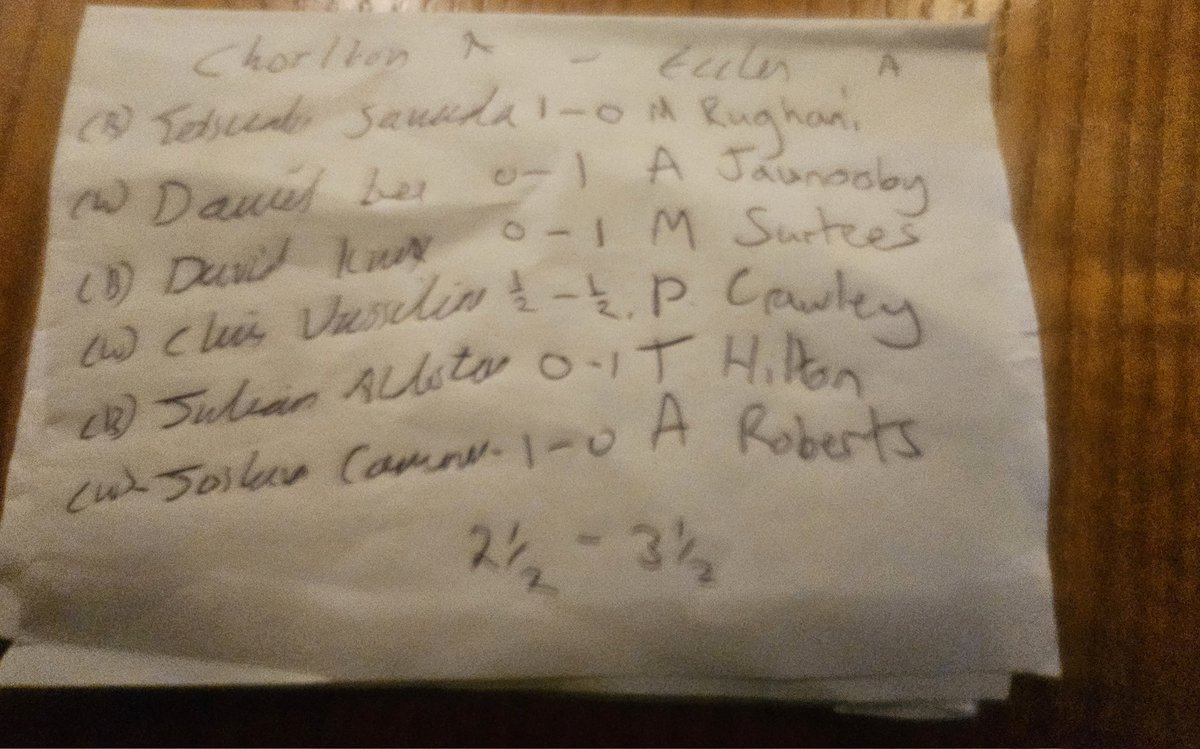 Chorlton A - Eccles A
(B) Sauceda 1-0 M Rughani
(W) Daniel Lee 0-1 A Jaunooby
(B) David Knox 0-1 M Surtees
(W) Chris ½-½ P Crawley
(B) Julian Allston 0-1 T Hilton
(W) Joshua 1-0 A Roberts
2½ - 3½